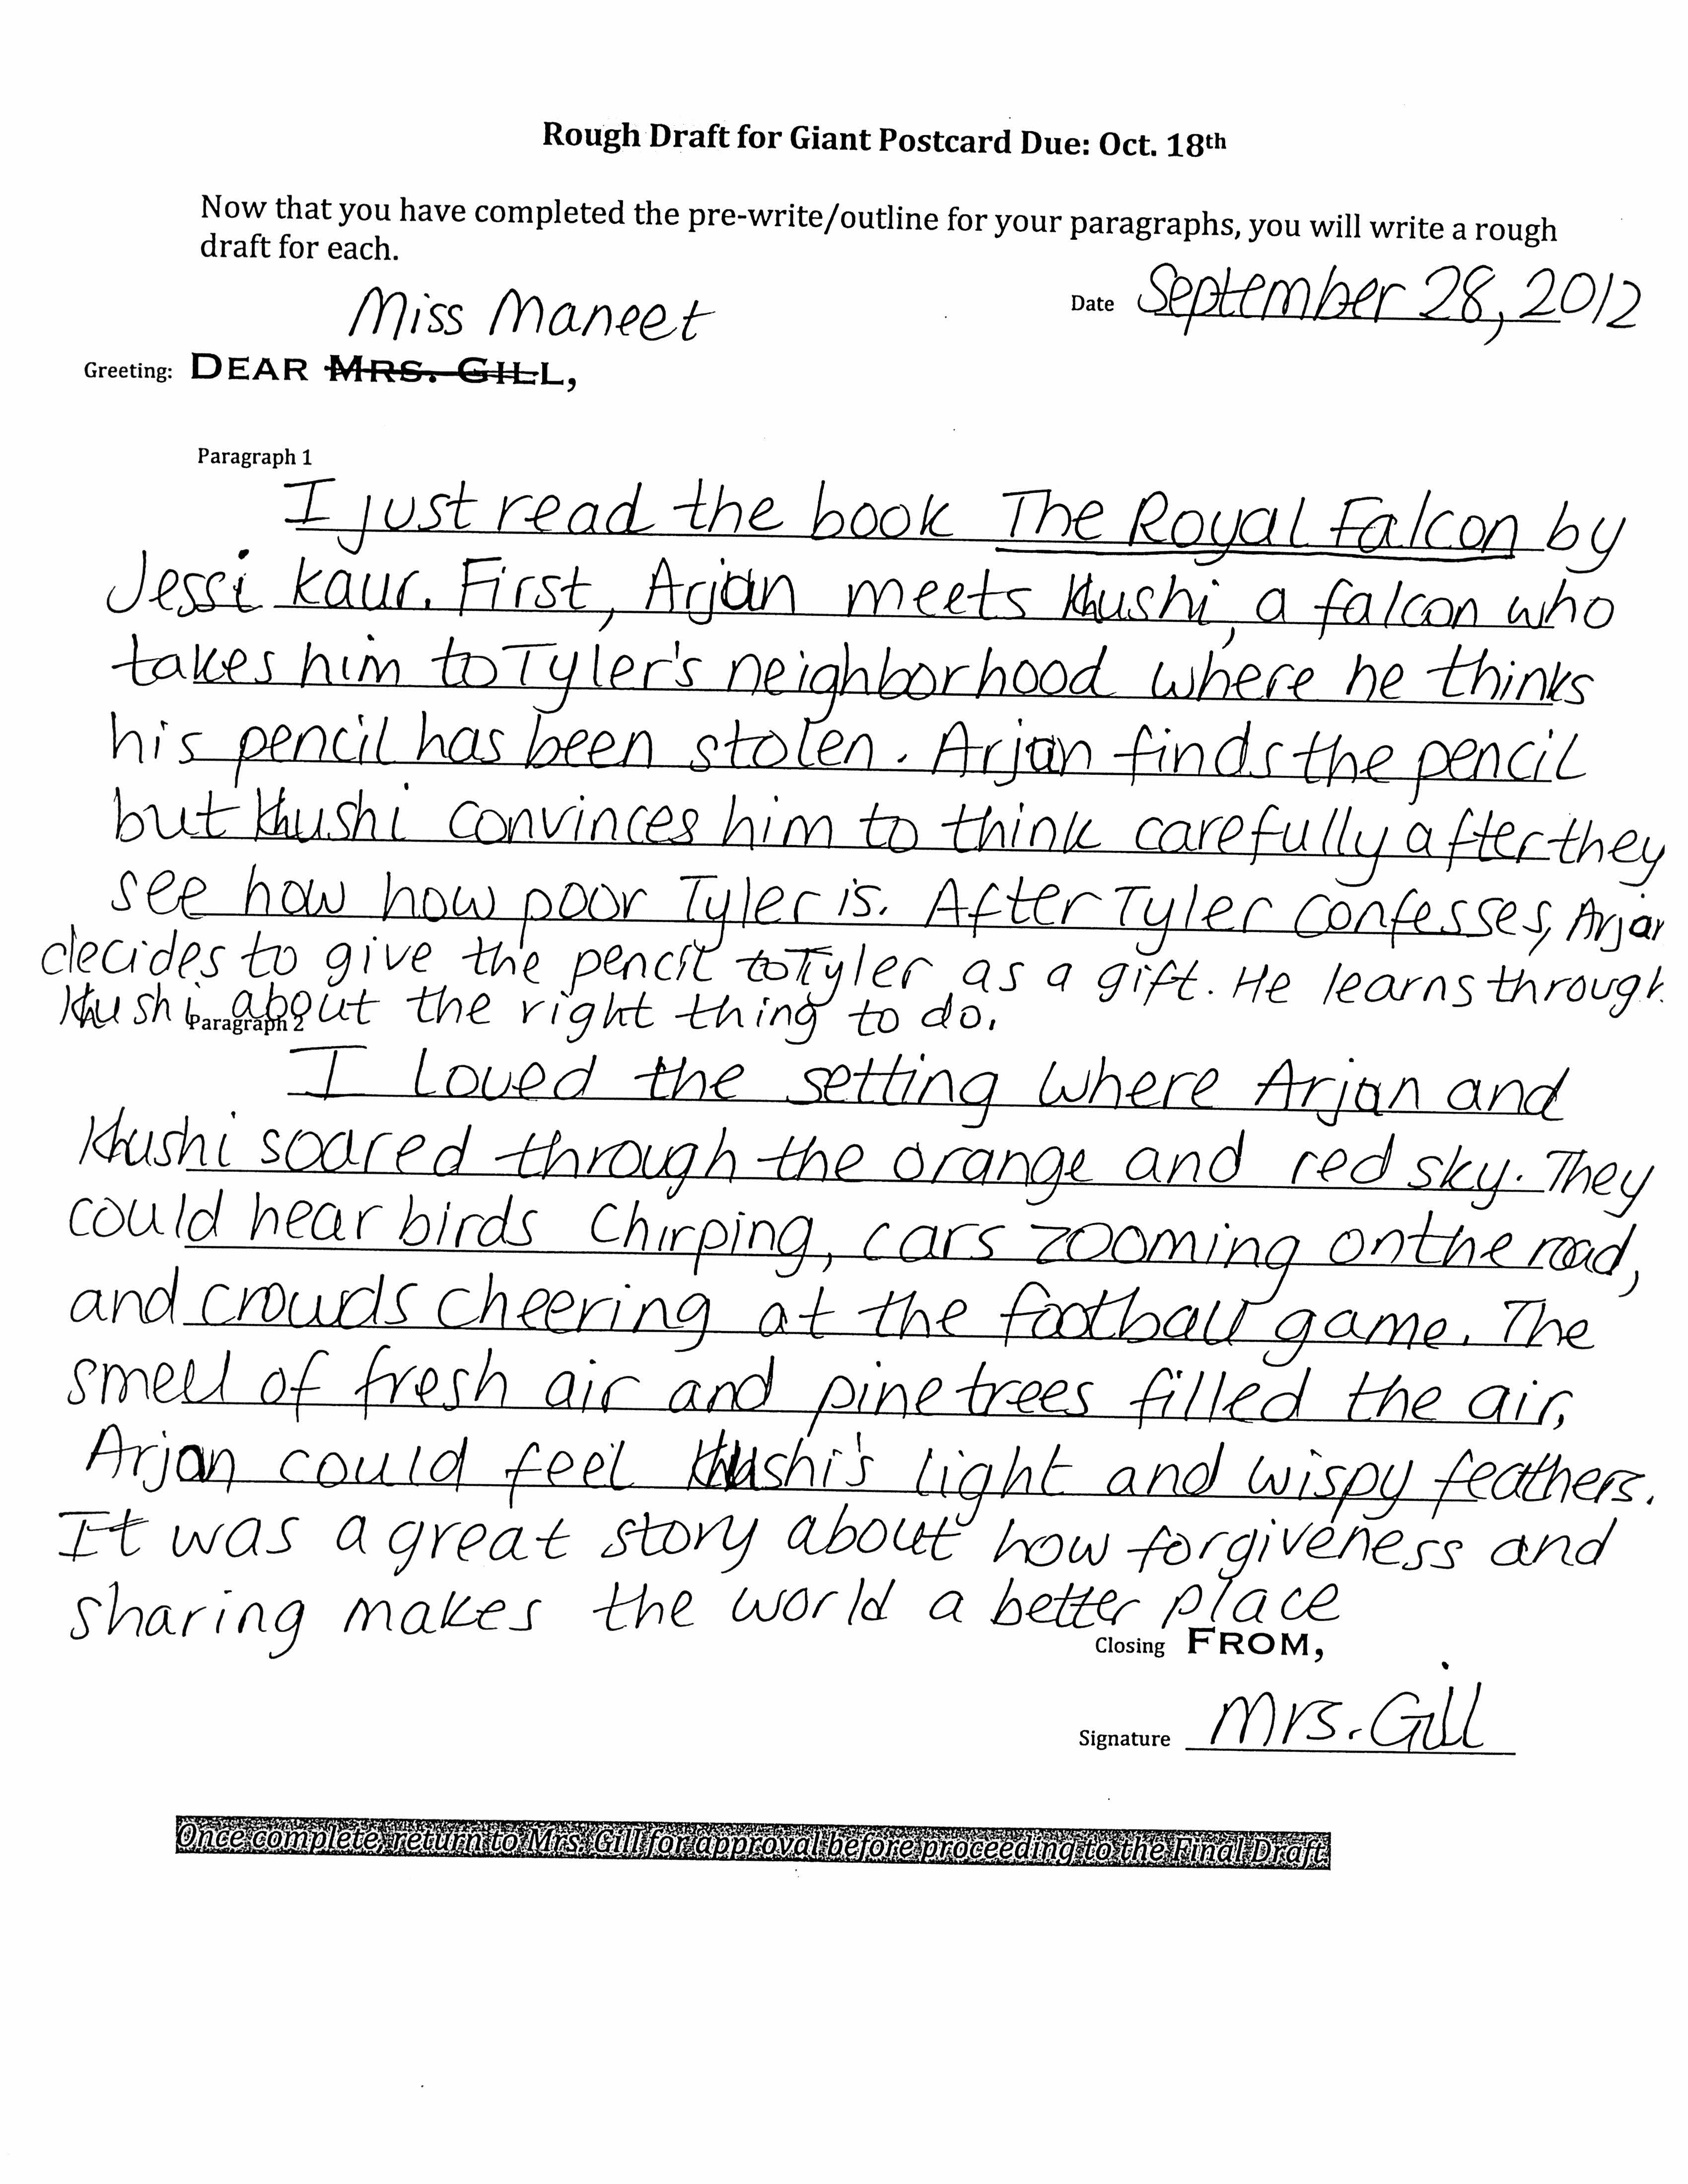 Rough Draft for Giant Postcard Due: Oct. 18th
Now that you have completed the pre-write/outline for your paragraphs, you will write a rough
draft for each.
Date September 28, 2012
Miss Maneet
Greeting: DEAR MRS. GILL,
Paragraph 1
I just read the book The Royal Falcon by
Jessi Kaur. First, Arjan meets Khushi, a falcon who
takes him to Tyler's neighborhood where he thinks
his pencil has been stolen. Arjan finds the pencil
but Khushi convinces him to think carefully after they
see how how poor Tyler is. After Tyler confesses, Arjan
decides to give the pencil to Tyler as a gift. He learns through
Khushi about the right thing to do.
Paragraph 2
I loved the setting where Arjan and
Khushi soared through the orange and red sky. They
could hear birds chirping, cars zooming on the road,
and crowds cheering at the football game. The
smell of fresh air and pine trees filled the air,
Arjan could feel Khushi's light and wispy feathers.
It was a great story about how forgiveness and
sharing makes the world a better place
Closing FROM,
Signature Mrs. Gill
Once complete, return to Mrs. Gill for approval before proceeding to the Final Draft.